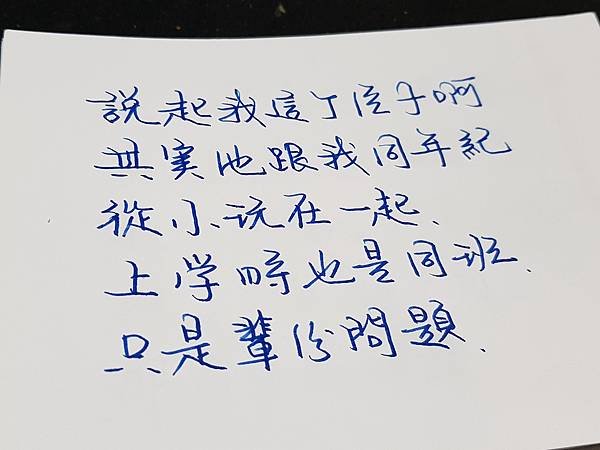 說起我這丫侄子啊
其实他跟我同年紀
從小玩在一起、
上学時也是同班、
只是輩份問題、